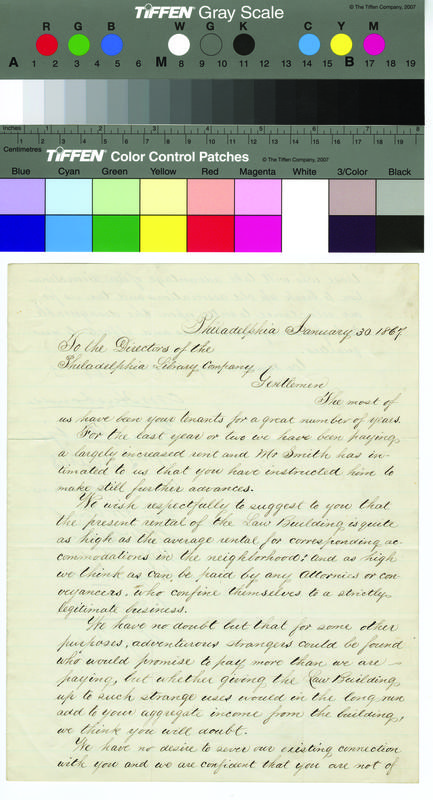 TIFFEN® Gray Scale
© The Tiffen Company, 2007
R G B W G K C Y M
A 1 2 3 4 5 6 M 8 9 10 11 12 13 14 15 B 17 18 19
Inches 1 2 3 4 5 6 7 8
Centimetres 1 2 3 4 5 6 7 8 9 10 11 12 13 14 15 16 17 18 19
TIFFEN® Color Control Patches
© The Tiffen Company, 2007
Blue Cyan Green Yellow Red Magenta White 3/Color Black
Philadelphia January 30 1867
To the Directors of the
Philadelphia Library Company
Gentlemen
The most of
us have been your tenants for a great number of years.
For the last year or two we have been paying
a largely increased rent and Mr Smith has in-
timated to us that you have instructed him to
make still further advances.
We wish respectfully to suggest to you that
the present rental of the Law Building is quite
as high as the average rental for corresponding ac-
commodations in the neighborhood: and as high
we think as can be paid by any Attornies or con-
veyancers, who confine themselves to a strictly
legitimate business.
We have no doubt but that for some other
purposes, adventurous strangers could be found
who would promise to pay more than we are
paying, but whether giving the Law Building
up to such strange uses would in the long run
add to your aggregate income from the building,
we think you will doubt.
We have no desire to sever our existing connection
with you and we are confident that you are not of